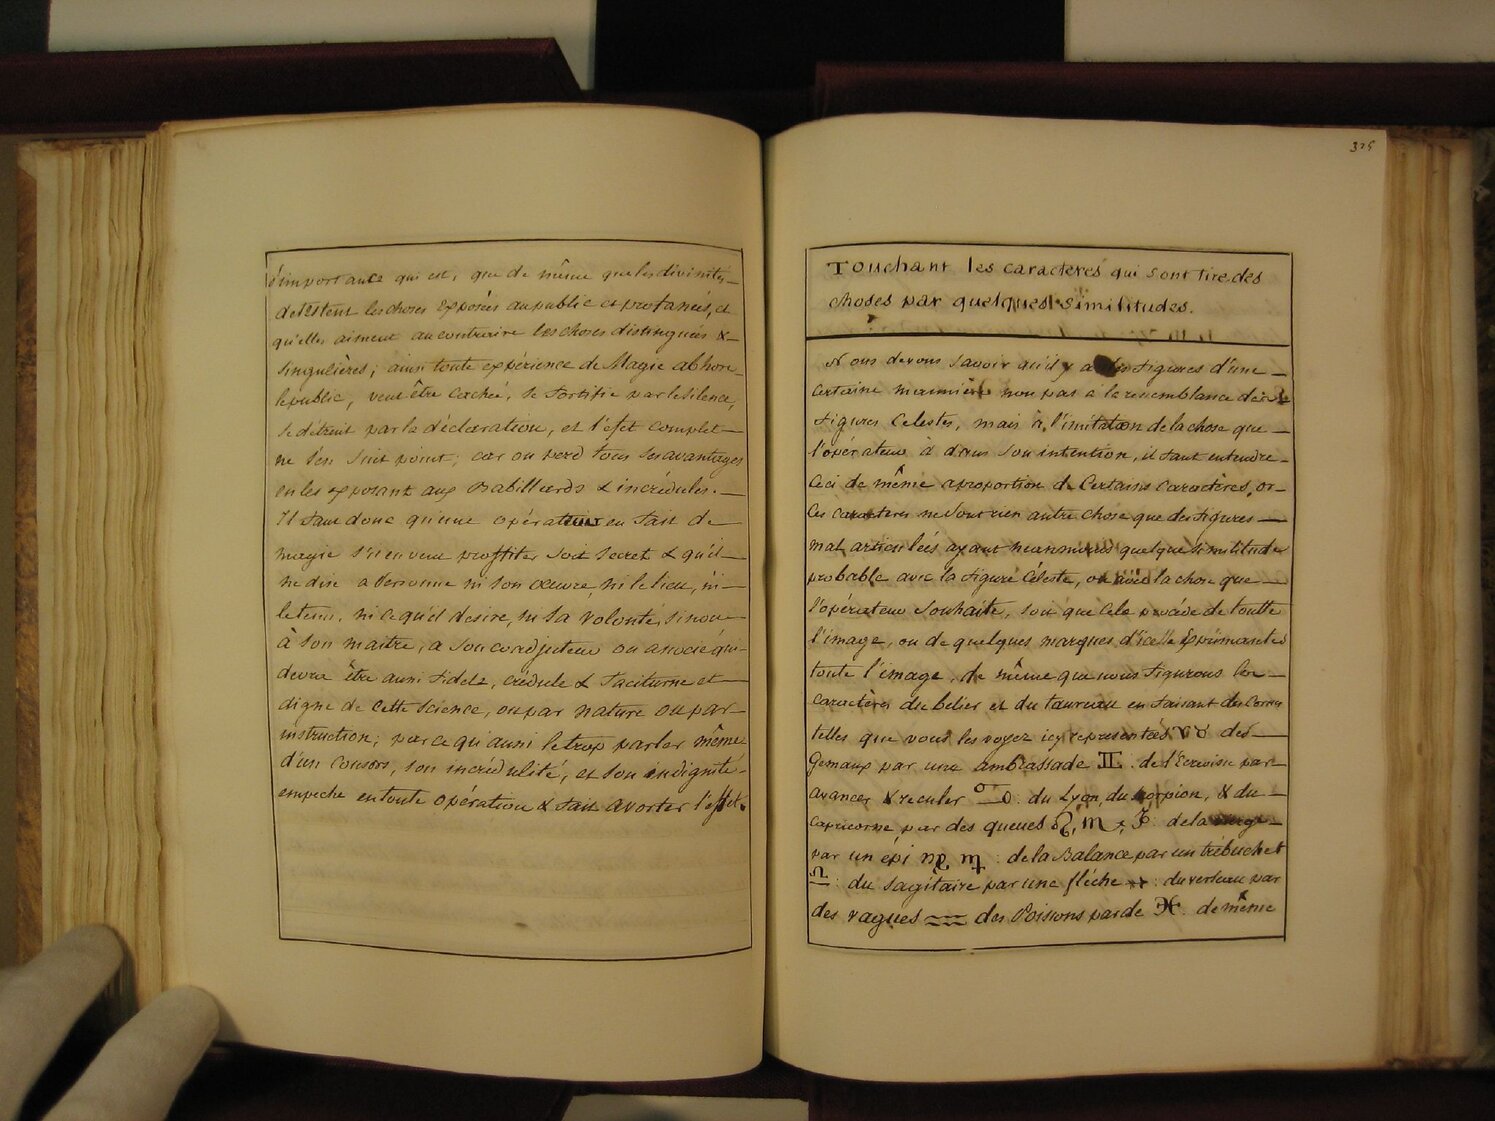 d'importance qui est, que de même que les divinités
detestent les choses Exposées au public et profanées, et
qu'elles aiment au contraire les choses distinguées &
singulières; ainsi toute expérience de Magie abhore
le public, veut être cachée, se fortifie par le silence,
se détruit par la déclaration, et l'efet complet
ne s'en suit point; car on perd tous ses avantages
en les exposant aux Babillards & incrédules.
Il faut donc qu'une opérateur en fait de
magie s'il en veut proffiter soit secret & qu'il
ne dise a Personne ni son œuvre, ni le lieu, ni
le tems, ni ce qu'il desire, ni sa volonté, sinon
à son maitre, a son coadjuteur ou associé qui
devra être aussi fidele, crédule & taciturne et
digne de cette science, ou par nature ou par
instruction; parce qu'aussi le trop parler même
d'un consors, son incrédulité, et son indignité
empeche en toute opération & fait avorter l'effet.
325
Touchant les caracteres qui sont tire des
choses par quelques similitudes.
Nous devons savoir qu'il y a des figures d'une
certaine manniere non pas a la ressemblance des
figures Celestes, mais à l'imitation de la chose que
l'opérateur à dans son intention, il faut entendre
Ceci de même aproportion de Certains Caractères, or
Ces caracteres ne sont rien autre chose que des figures
mal articulées ayant neanmoins quelque similitude
probable avec la figure Céleste, ou avec la chose que
l'opérateur Souhaite, soit que cela procéde de toutte
l'image, ou de quelques marques d'icelle Exprimantes
toute l'image, de même que nous figurons les
caractères du belier et du taureau en faisant des Cornes
telles que vous les voyez icy representées ♈ ♉ des
Gemaux par une ambrassade ♊ : de l'Ecrevisse par
avancer & reculer ♋ : du Lyon, du scorpion, & du
capricorne par des queues ♌, ♏, ♑ : de la vierge
par un épi ♍ : de la Balance par un trébuchet
♎ : du sagitaire par une fléche ♐ : du verseau par
des vagues ♒ des Poissons par de ♓ : de même